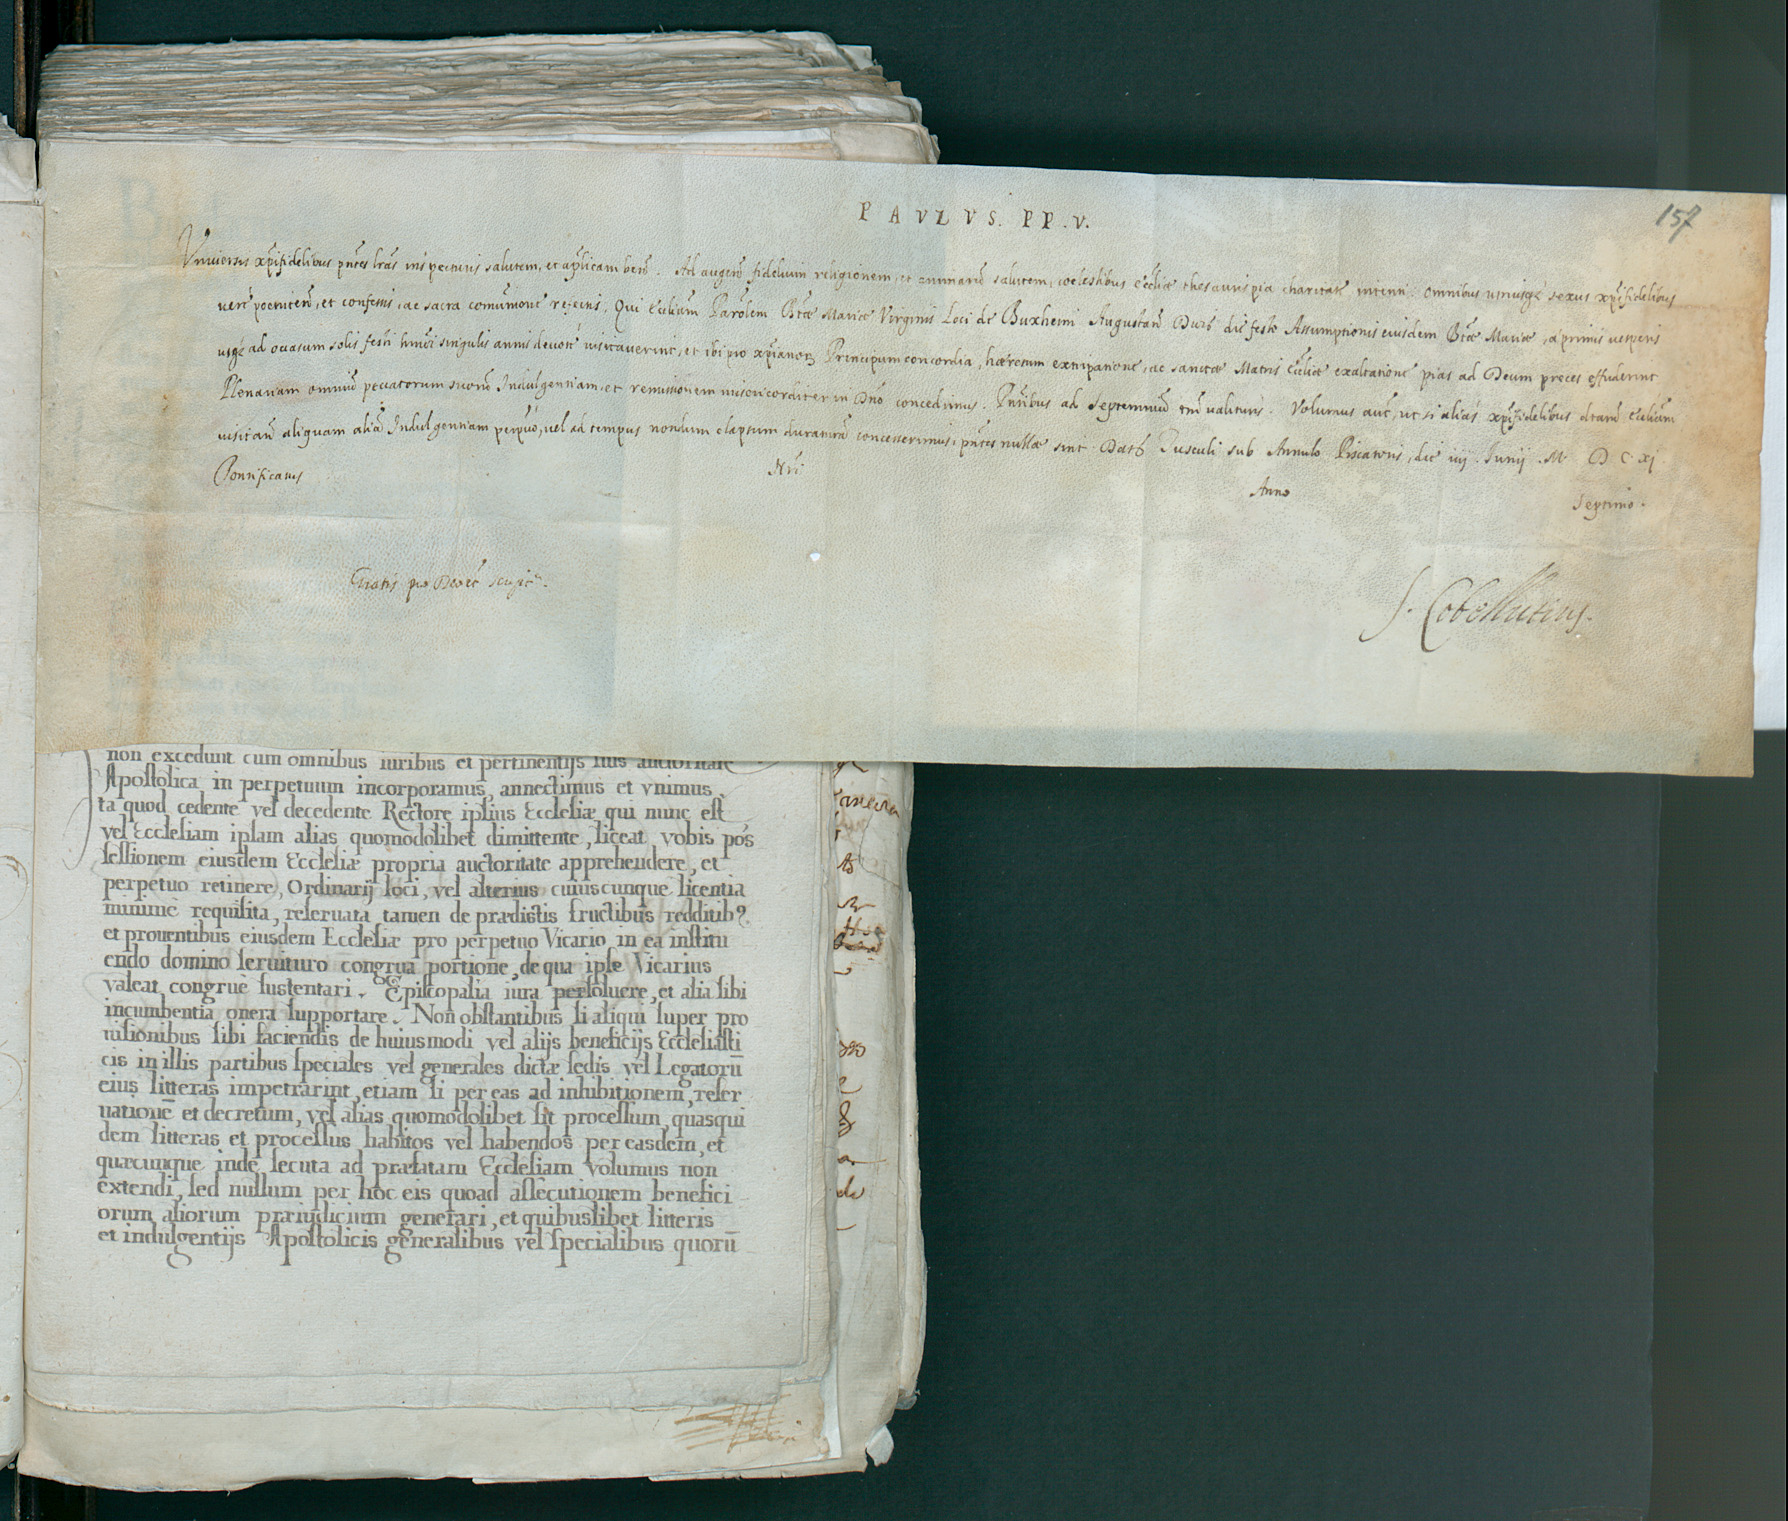 PAVLVS. PP. V.
157
Vniversis xp̄ifidelibus pn̄tes lr̄as inspecturis salutem, et ap̄licam ben̄. Ad augen̄ fidelium religionem, et animarū salutem, coelestibus Eccl̄iæ thesauris pia charitate intenti omnibus utriusq́ꝫ sexus xp̄ifidelibus
verè poeniten̄, et confessis, ac sacra com̄unione refectis, Qui Eccl̄iam Parōlem Bt̄æ Mariæ Virginis Loci de Buxheim Augustan̄ Diœc̄ die festo Assumptionis eiusdem Bt̄æ Mariæ, à primis vesperis
usq́ꝫ ad occasum solis festi hm̄oi singulis annis devotè visitaverint, et ibi pro xp̄ianoꝝ Principum concordia, hæresum extirpatione, ac sanctæ Matris Eccl̄iæ exaltatione pias ad Deum preces effuderint
Plenariam omniū peccatorum suorū Indulgentiam, et remissionem misericorditer in Dn̄o concedimus. Pn̄tibus ad Septennium tm̄ valituris. Volumus aut̄, ut si alias xp̄ifidelibus dictam Eccl̄iam
visitan̄ aliquam aliā Indulgentiam perpuō, vel ad tempus nondum elapsum duraturā concesserimus, pn̄tes nullæ sint. Dat̄ Tusculi sub Annulo Piscatoris, die iiij. Junij. M. D C. xj
Pontificatus Nr̄i Anno Septimo.
Gratis pro Deo et script.
S. Cobellutius.
non excedunt cum omnibus iuribus et pertinentijs suis auctoritate
Apostolica in perpetuum incorporamus, annectimus et vnimus.
Ita quod cedente vel decedente Rectore ipsius Ecclesiæ qui nunc est
vel Ecclesiam ipsam alias quomodolibet dimittente, liceat vobis pos
sessionem eiusdem Ecclesiæ propria auctoritate apprehendere, et
perpetuo retinere, Ordinarij loci, vel alterius cuiuscunque licentia
minimè requisita, reseruata tamen de prædictis fructibus redditib9
et prouentibus eiusdem Ecclesiæ pro perpetuo Vicario in ea institu
endo domino seruituro congrua portione, de qua ipse Vicarius
valeat congruè sustentari. Episcopalia iura persoluere, et alia sibi
incumbentia onera supportare. Non obstantibus si aliqui super pro
uisionibus sibi faciendis de huiusmodi vel alijs beneficijs Ecclesiasti
cis in illis partibus speciales vel generales dictæ sedis vel Legatorū
eius litteras impetrarint, etiam si per eas ad inhibitionem, reser
uationē et decretum, vel alias quomodolibet sit processum, quasqui
dem litteras et processus habitos vel habendos per easdem, et
quæcunque inde secuta ad præfatam Ecclesiam volumus non
extendi, sed nullum per hoc eis quoad assecutionem benefici
orum aliorum præiudicium generari, et quibuslibet litteris
et indulgentijs Apostolicis generalibus vel specialibus quorū